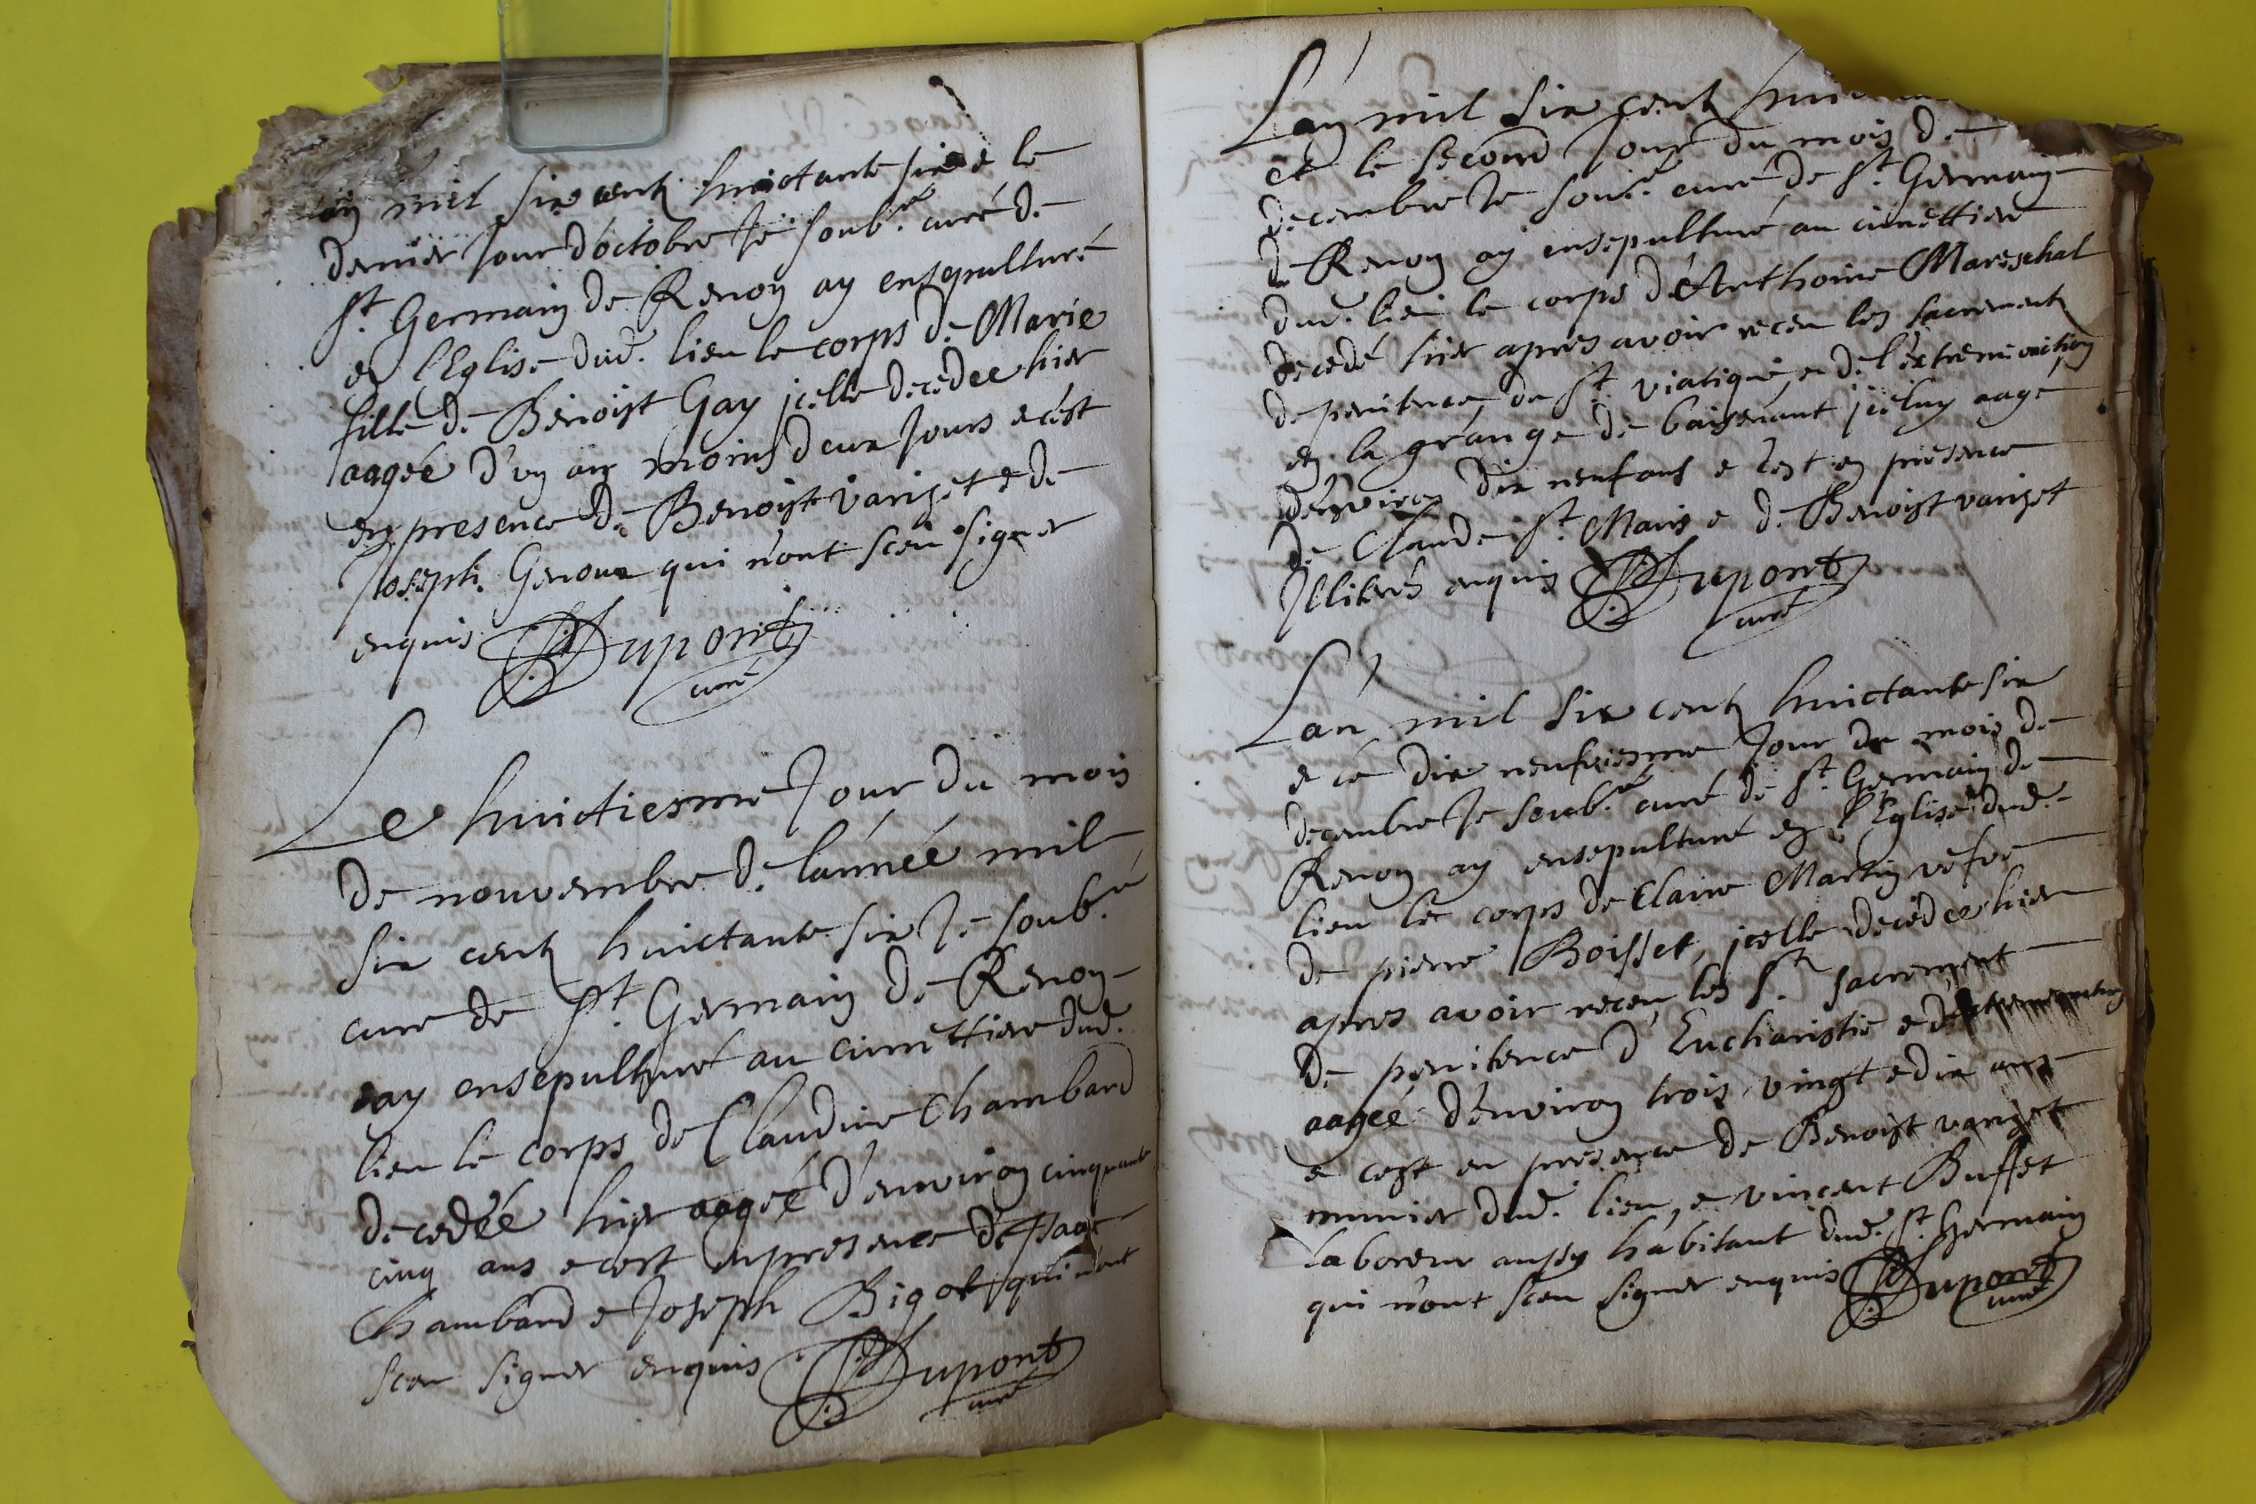 mil six cents huictante six e le
dernier Jour d'octobre Je soub.né curé de
St. Germain de Renon ay ensepulturé
en l'Eglise dud. lieu le corps de Marie
fille de Benoist Gay jcelle decedee hier
aagée d'un an moins deux Jours e c'est
en presence de Benoist varizet e de
Joseph Genoux qui n'ont sceu signer
enquis Dupont
curé
Le huictiesme Jour du mois
de nouvembre de l'année mil
six cents huictante six Je soub.né
curé de St. Germain de Renon
ay ensepulturé au cimettiere dud.
lieu le corps de Claudine Chambard
decedée hier aagée d'environ cinquante
cinq ans e c'est en presence d'Isaac
Chambard e Joseph Bigot qui n'ont
sceu signer enquis Dupont
curé
L'an mil six cents
et le second Jour du mois de
decembre Je soub.né curé de St. Germain
de Renon ay ensepulturé au cimettiere
dud. lieu le corps d'Anthoine Mareschal
decedé hier apres avoir receu les sacrements
de penitence, du St. viatique, e de l'extremeonction
en la grange de jceluy aagé
d'environ dix neuf ans e c'est en presence
de Claude St. Maris e de Benoist varizet
Jlliterés enquis Dupont
curé
L'an mil six cents huictante six
e le dix neufviesme Jour du mois de
decembre Je soub.né curé de St. Germain de
Renon ay ensepulturé en l'Eglise dud.
lieu le corps de Claire Martin vefve
de pierre Boisset, jcelle decedee hier
apres avoir receu les Sts. sacrement
de penitence d'Eucharistie e d'extremeonction
aagée d'environ trois vingt e dix ans
e c'est en presence de Benoist varizet
munier dud. lieu, e vincent Buffet
laboreur aussy habitant dud. St. Germain
qui n'ont sceu signer enquis Dupont
curé